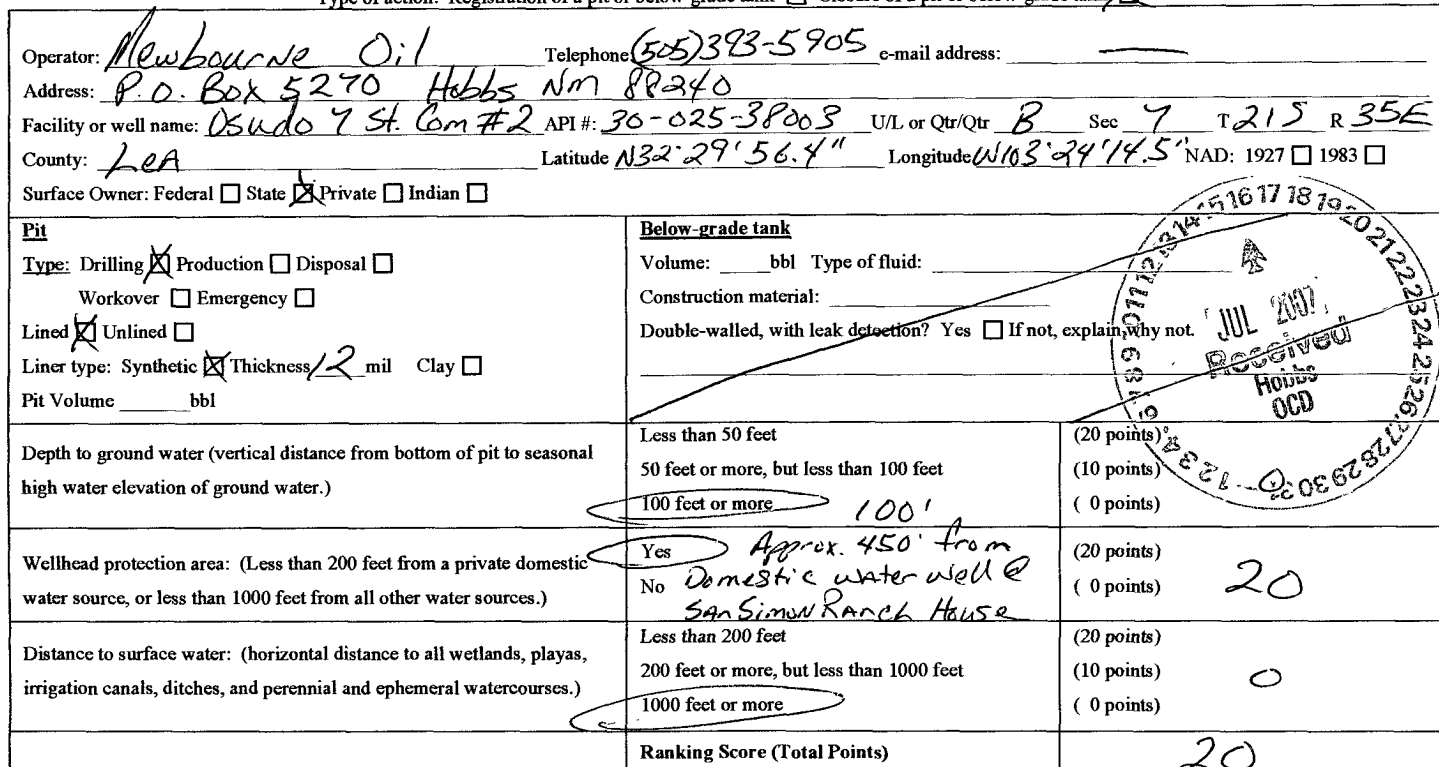 Type of action: Registration of a pit or below-grade tank ☐ Closure of a pit or below-grade tank ☒
Operator: Mewbourne Oil Telephone (505)393-5905 e-mail address: ——
Address: P.O. Box 5270 Hobbs NM 88240
Facility or well name: Osudo 7 St. Com #2 API #: 30-025-38003 U/L or Qtr/Qtr B Sec 7 T 21S R 35E
County: LeA Latitude N32°29'56.4" Longitude W103°24'14.5" NAD: 1927 ☐ 1983 ☐
Surface Owner: Federal ☐ State ☒ Private ☐ Indian ☐
Pit
Type: Drilling ☒ Production ☐ Disposal ☐
Workover ☐ Emergency ☐
Lined ☒ Unlined ☐
Liner type: Synthetic ☒ Thickness 12 mil Clay ☐
Pit Volume ______ bbl
Below-grade tank
Volume: ____ bbl Type of fluid: ______
Construction material: ______
Double-walled, with leak detection? Yes ☐ If not, explain why not.
JUL 2007
Received
Hobbs
OCD
1 2 3 4 5 6 7 8 9 10 11 12 13 14 15 16 17 18 19 20 21 22 23 24 25 26 27 28 29 30 31
Depth to ground water (vertical distance from bottom of pit to seasonal
high water elevation of ground water.)
Less than 50 feet (20 points)
50 feet or more, but less than 100 feet (10 points)
100 feet or more 100' ( 0 points)
Wellhead protection area: (Less than 200 feet from a private domestic
water source, or less than 1000 feet from all other water sources.)
Yes Approx. 450' from (20 points)
No Domestic water well @ ( 0 points) 20
SAn Simon RAnch House
Distance to surface water: (horizontal distance to all wetlands, playas,
irrigation canals, ditches, and perennial and ephemeral watercourses.)
Less than 200 feet (20 points)
200 feet or more, but less than 1000 feet (10 points) 0
1000 feet or more ( 0 points)
Ranking Score (Total Points) 20